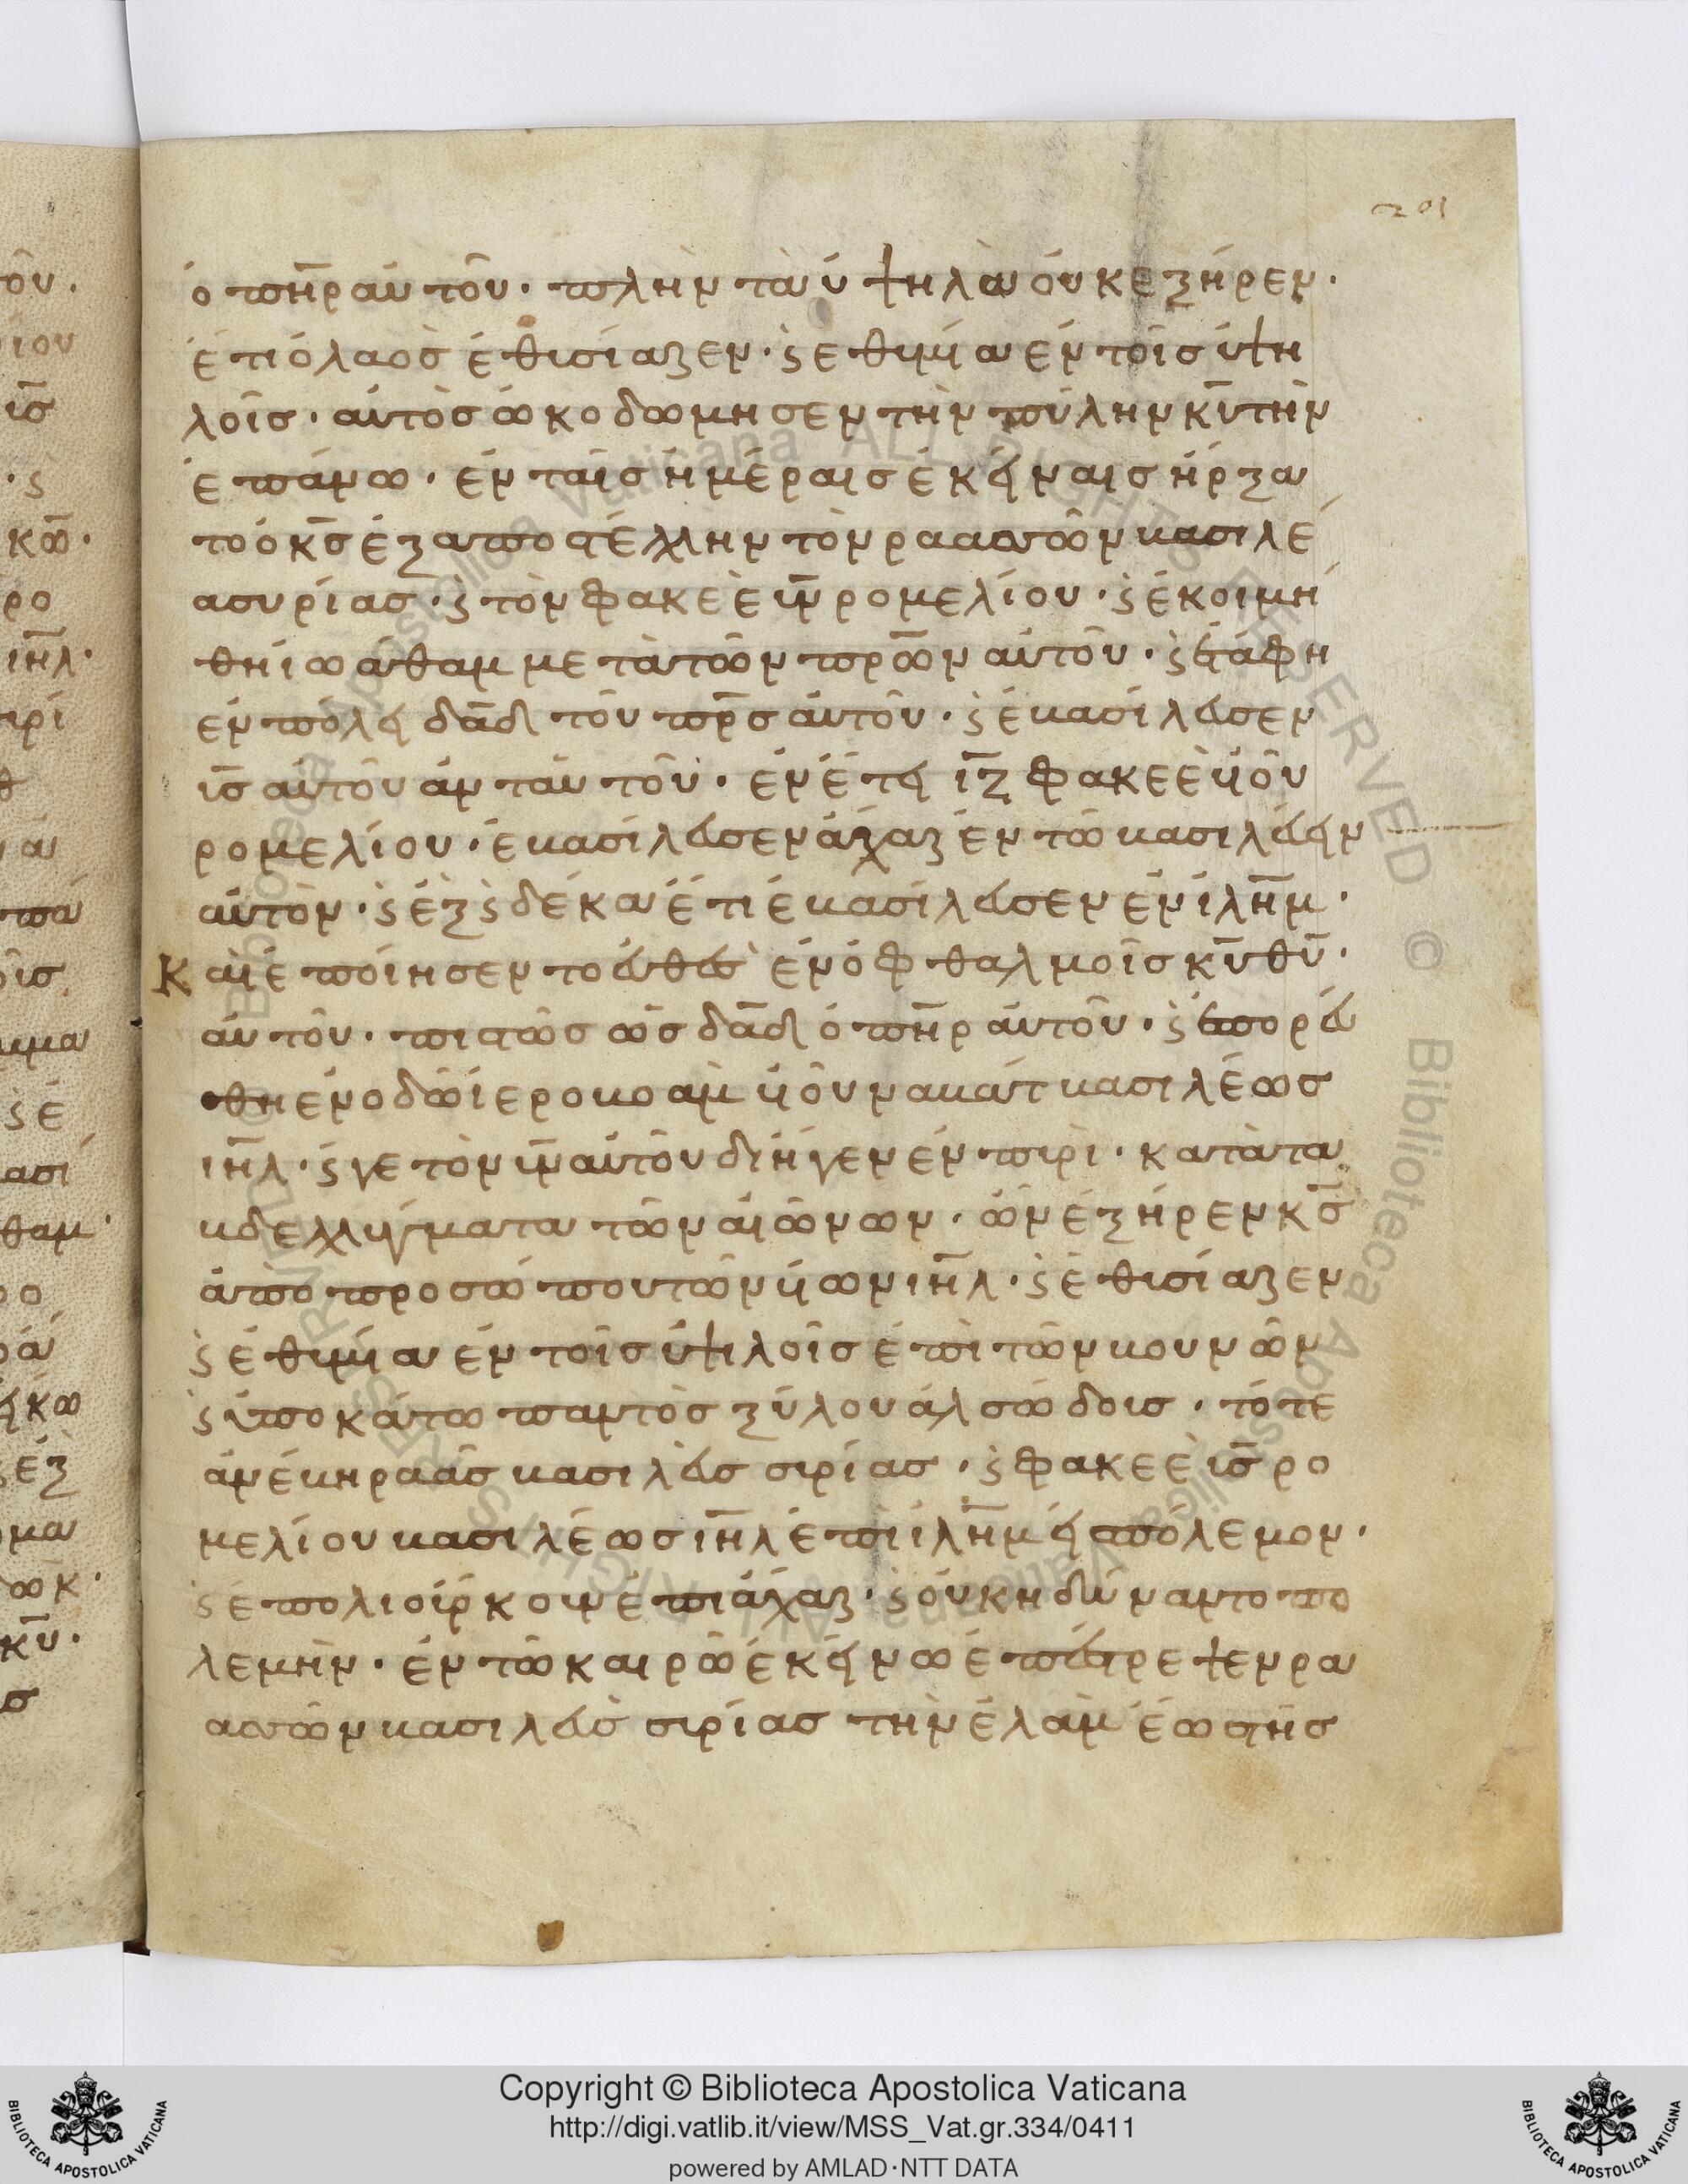 201
ὁ πη̅ρ αὐτοῦ· πλὴν τὰ ὑψηλὰ οὐκ ἐξήρεν·
ἔτι ὁ λαὸς ἐθισίαζεν· ϗ ἐθυμία ἐν τοῖς ὑψη
λοῖς· αὐτὸς ὠκοδώμησεν τὴν πύλην κ̅υ τὴν
ἐπάνω· ἐν ταῖς ἡμέραις ἐκείναις ἤρξα
το ὁ κ̅ς ἐξαποστέλλην τὸν ραασσῶν βασιλέ
ασυρίας· ϗ τὸν φακεὲ υ̅ν ρομελίου· ϗ ἐκοιμή
θη ἰωάθαμ μετὰ τῶν πρ̅ων αὐτοῦ· ϗ ἐτάφη
ἐν πόλει δα̅δ τοῦ πρ̅ς αὐτοῦ· ϗ ἐβασίλευσεν
υ̅ς αὐτοῦ ἀνταὐτοῦ· ἐν ἔτει ι̅ζ φακεὲ υἱοῦ
ρομελίου· ἐβασίλευσεν ἄχαζ ἐν τῶ βασιλεύειν
αὐτὸν· ϗ ἓξ ϗ δέκα ἔτι ἐβασίλευσεν ἐν ιλη̅μ·
Καὶ ἐποίησεν το εὐθὲς ἐν ὀφθαλμοῖς κ̅υ θ̅υ·
αὐτοῦ· πιστῶς ὡς δα̅δ ὁ πη̅ρ αὐτοῦ· ϗ ἐπορεύ
θη ἐν οδῶ ἱεροβοαμ υἱοῦ ναβὰτ βασιλέως
ιη̅λ· ϗ γε τὸν υ̅ν αὐτοῦ διήγεν ἐν πυρὶ· κατὰ τα
βδελλύγματα τῶν αἰῶνων· ὧν ἐξήρεν κ̅ς
ἀπὸ προσώπου τῶν υἱων ιη̅λ· ϗ ἐθισίαζεν
ϗ ἐθυμία ἐν τοῖς ὑψιλοῖς ἐπὶ τῶν βουνῶν
ϗ ὑποκάτω παντὸς ξύλου ἀλσώδοις· τότε
ἀνέβη ραὰς βασιλεὺς συρίας· ϗ φακεὲ υ̅ς ρο
μελίου βασιλέως ιη̅λ ἐπὶ ιλη̅μ εἰς πόλεμον·
ϗ ἐπολιοίρκουν ἐπι ἄχαζ· ϗ οὐκ ηδύναντο πο
λεμὴν· ἐν τῶ καιρῶ ἐκείνω ἐπέστρεψεν ρα
ασσῶν βασιλεὺς συρίας τὴν ἐλὰμ ἕως τῆς
Copyright © Biblioteca Apostolica Vaticana
http://digi.vatlib.it/view/MSS_Vat.gr.334/0411
powered by AMLAD·NTT DATA